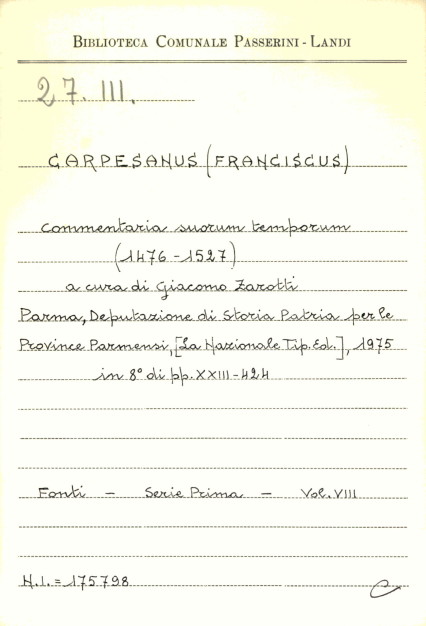 BIBLIOTECA COMUNALE PASSERINI - LANDI
27. III.
CARPESANUS (FRANCISCUS)
Commentaria suorum temporum
(1476 - 1527)
a cura di Giacomo Zarotti
Parma, Deputazione di Storia Patria per le
Province Parmensi, [La Nazionale Tip. Ed.], 1975
in 8° di pp. XXIII - 424
Fonti - Serie Prima - Vol. VIII
N.I. = 175798